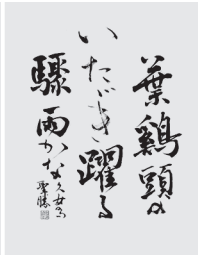 葉鶏頭の
いただき躍る
驟雨かな 久女の句